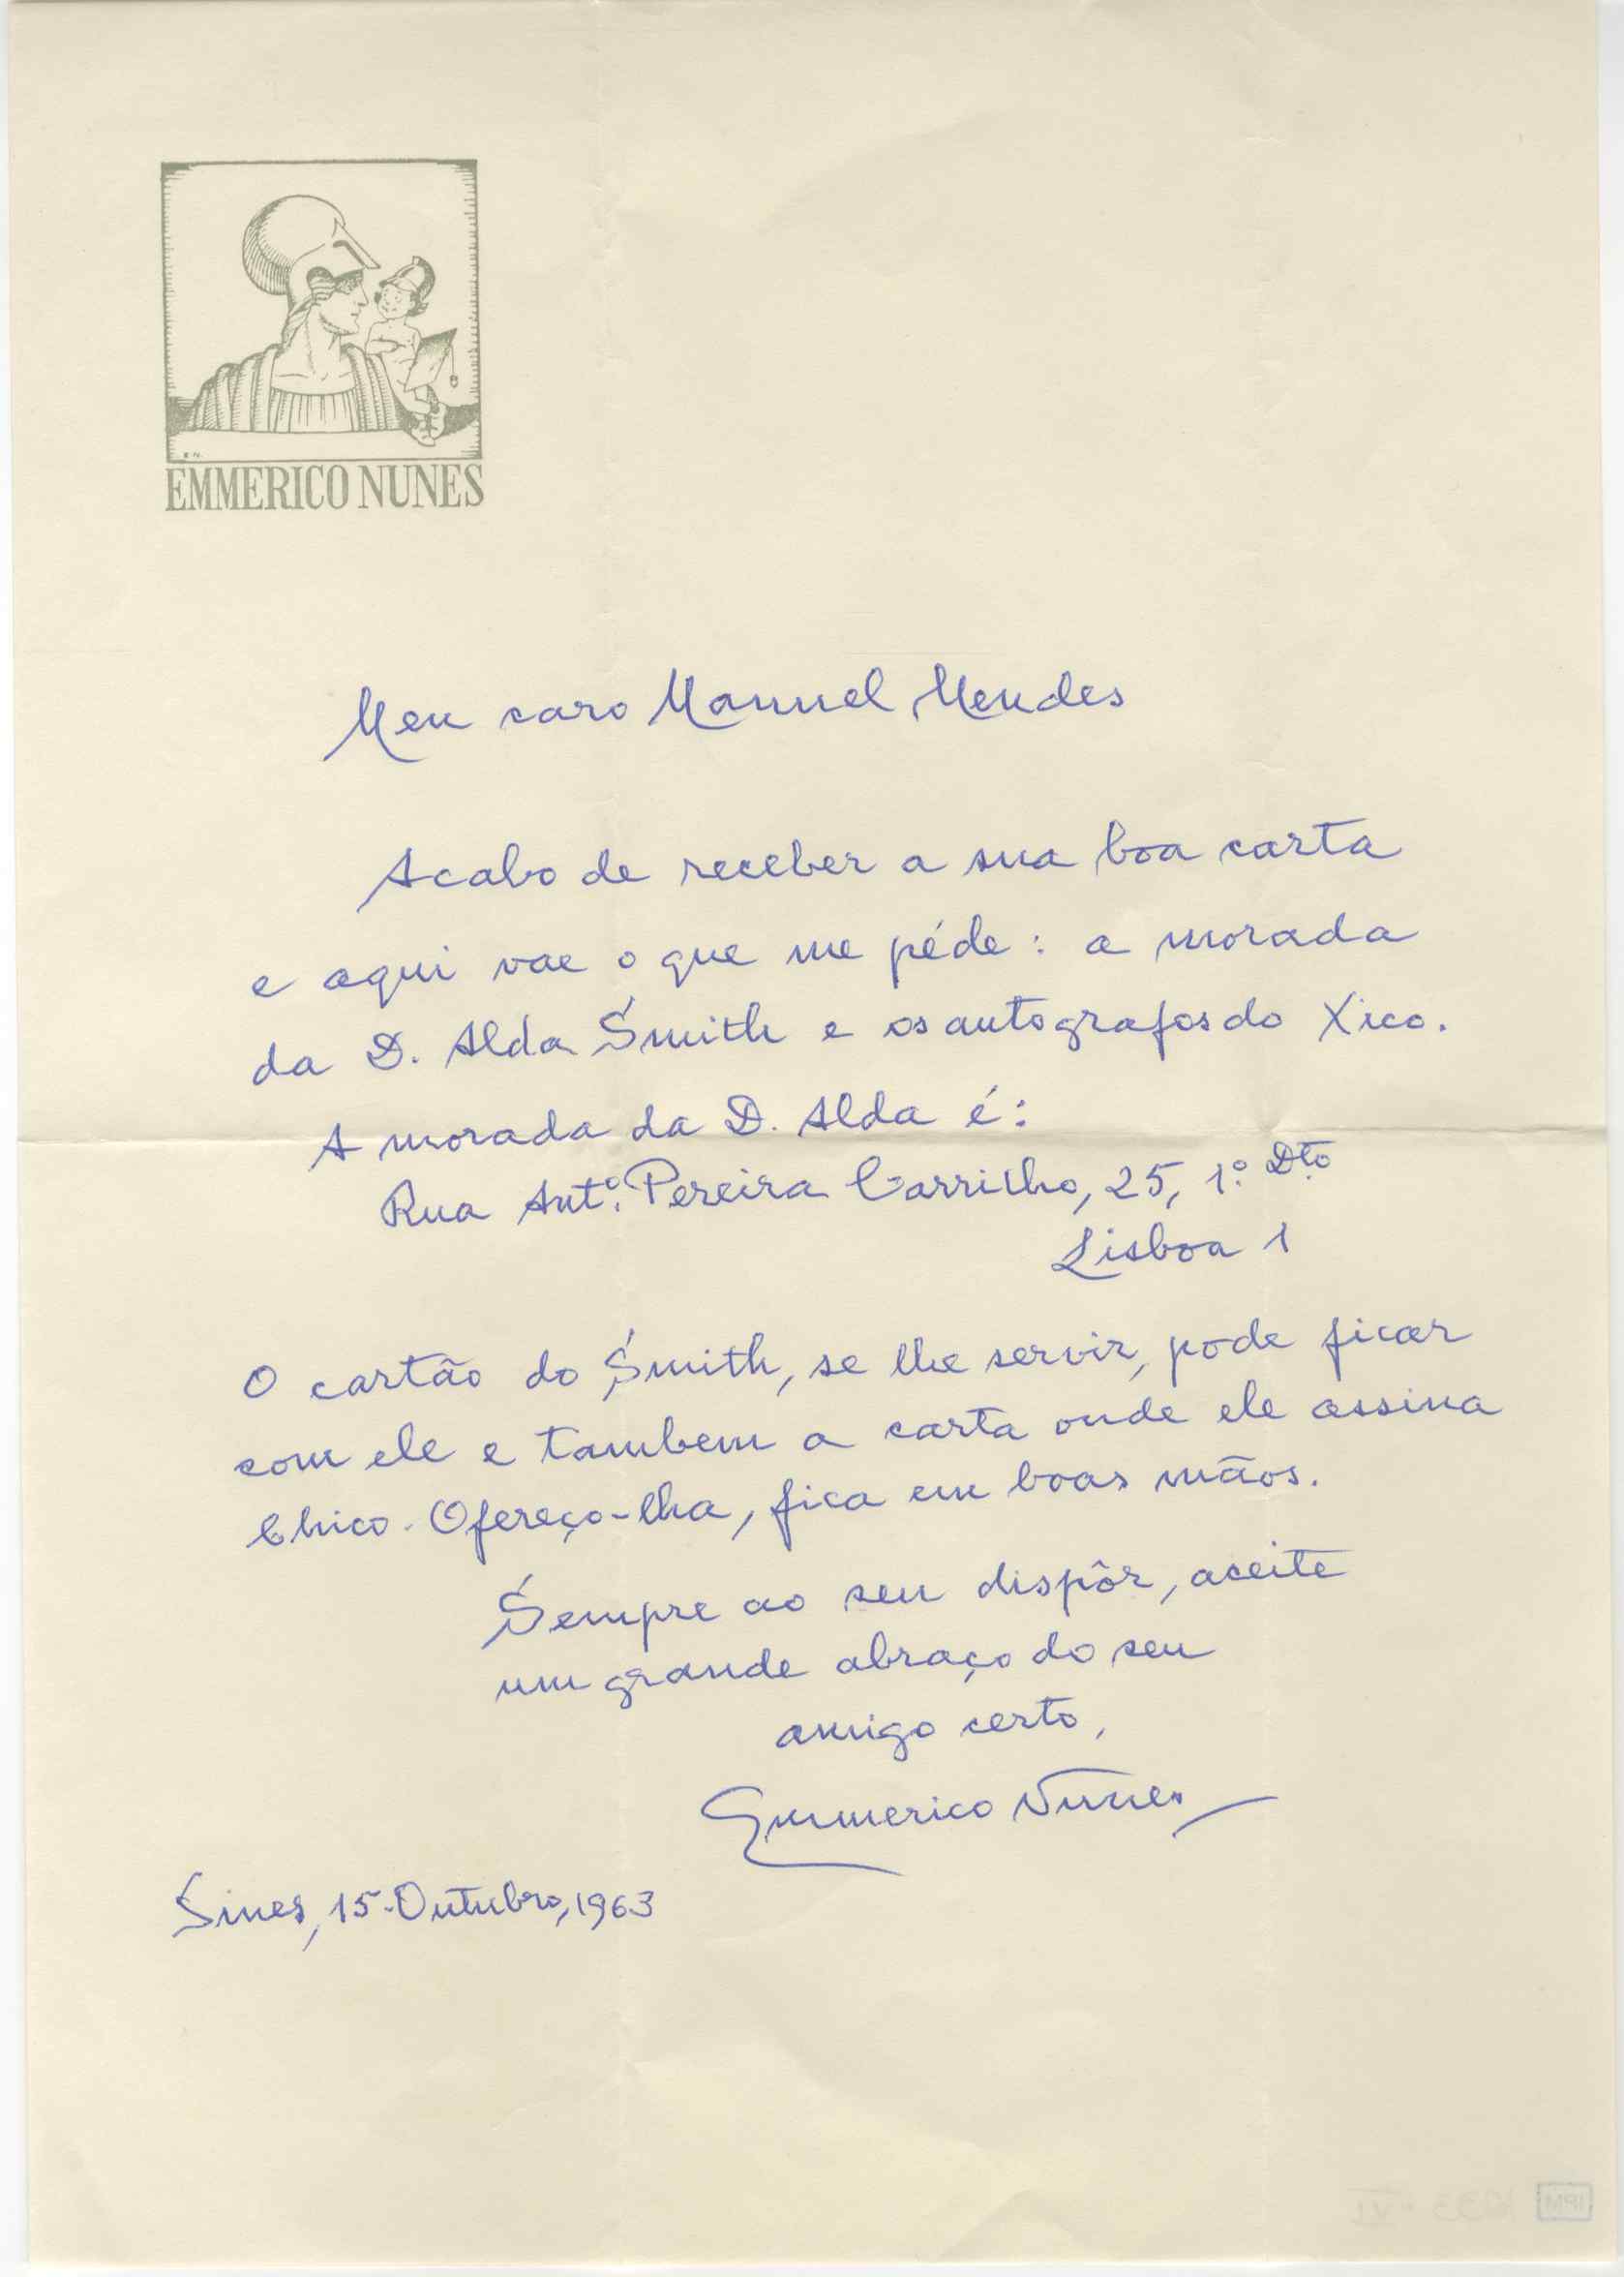 E N.
EMMERICO NUNES
Meu caro Manuel Mendes
Acabo de receber a sua boa carta
e aqui vae o que me péde: a morada
da D. Alda Smith e os autografos do Xico.
A morada da D. Alda é:
Rua Antº. Pereira Carrilho, 25, 1º. Dto
Lisboa 1
O cartão do Smith, se lhe servir, pode ficar
com ele e tambem a carta onde ele assina
Chico. Ofereço-lha, fica em boas mãos.
Sempre ao seu dispôr, aceite
um grande abraço do seu
amigo certo,
Emmerico Nunes
Sines, 15-Outubro, 1963
IPM